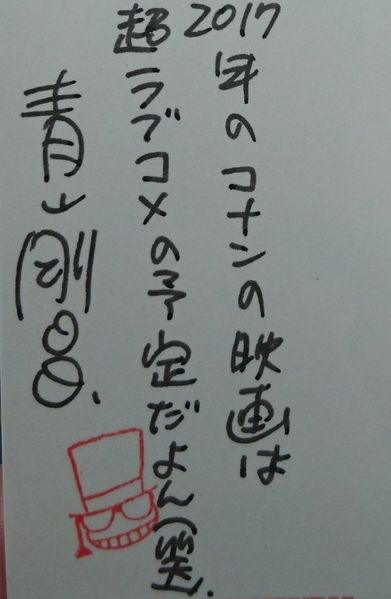 2017年のコナンの映画は
超ラブコメの予定だよん(笑.
青山剛昌.